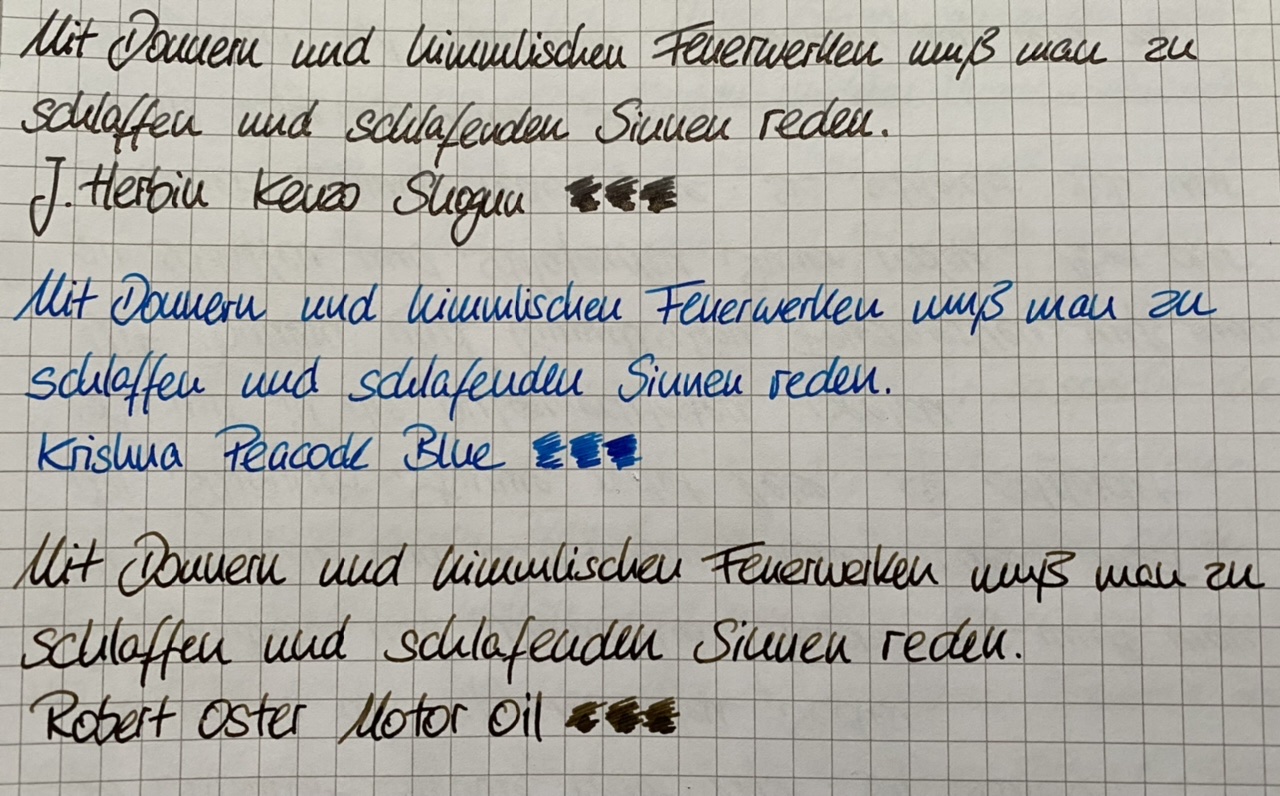 Mit Donnern und himmlischen Feuerwerken muß man zu
schlaffen und schlafenden Sinnen reden.
J. Herbin Kenzo Shogun
Mit Donnern und himmlischen Feuerwerken muß man zu
schlaffen und schlafenden Sinnen reden.
Krishna Peacock Blue
Mit Donnern und himmlischen Feuerwerken muß man zu
schlaffen und schlafenden Sinnen reden.
Robert Oster Motor Oil